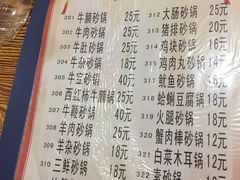 301 牛腩砂锅 25元
302 牛肉砂锅 25元
303 牛肚砂锅 25元
304 牛杂砂锅 18元
305 牛宝砂锅 40元
306 西红柿牛腩锅 25元
307 牛鞭砂锅 40元
308 羊肉砂锅 25元
309 羊杂砂锅 18元
310 三鲜砂锅 18元
312 大肠砂锅 25元
313 猪排砂锅 20元
314 鸡块砂锅 16元
315 鸡肉丸砂锅 15元
317 鱿鱼砂锅 16元
318 蛤蜊豆腐锅 18元
319 火腿砂锅 12元
320 蟹肉棒砂锅 12元
321 白菜木耳锅 12元
322 素砂锅